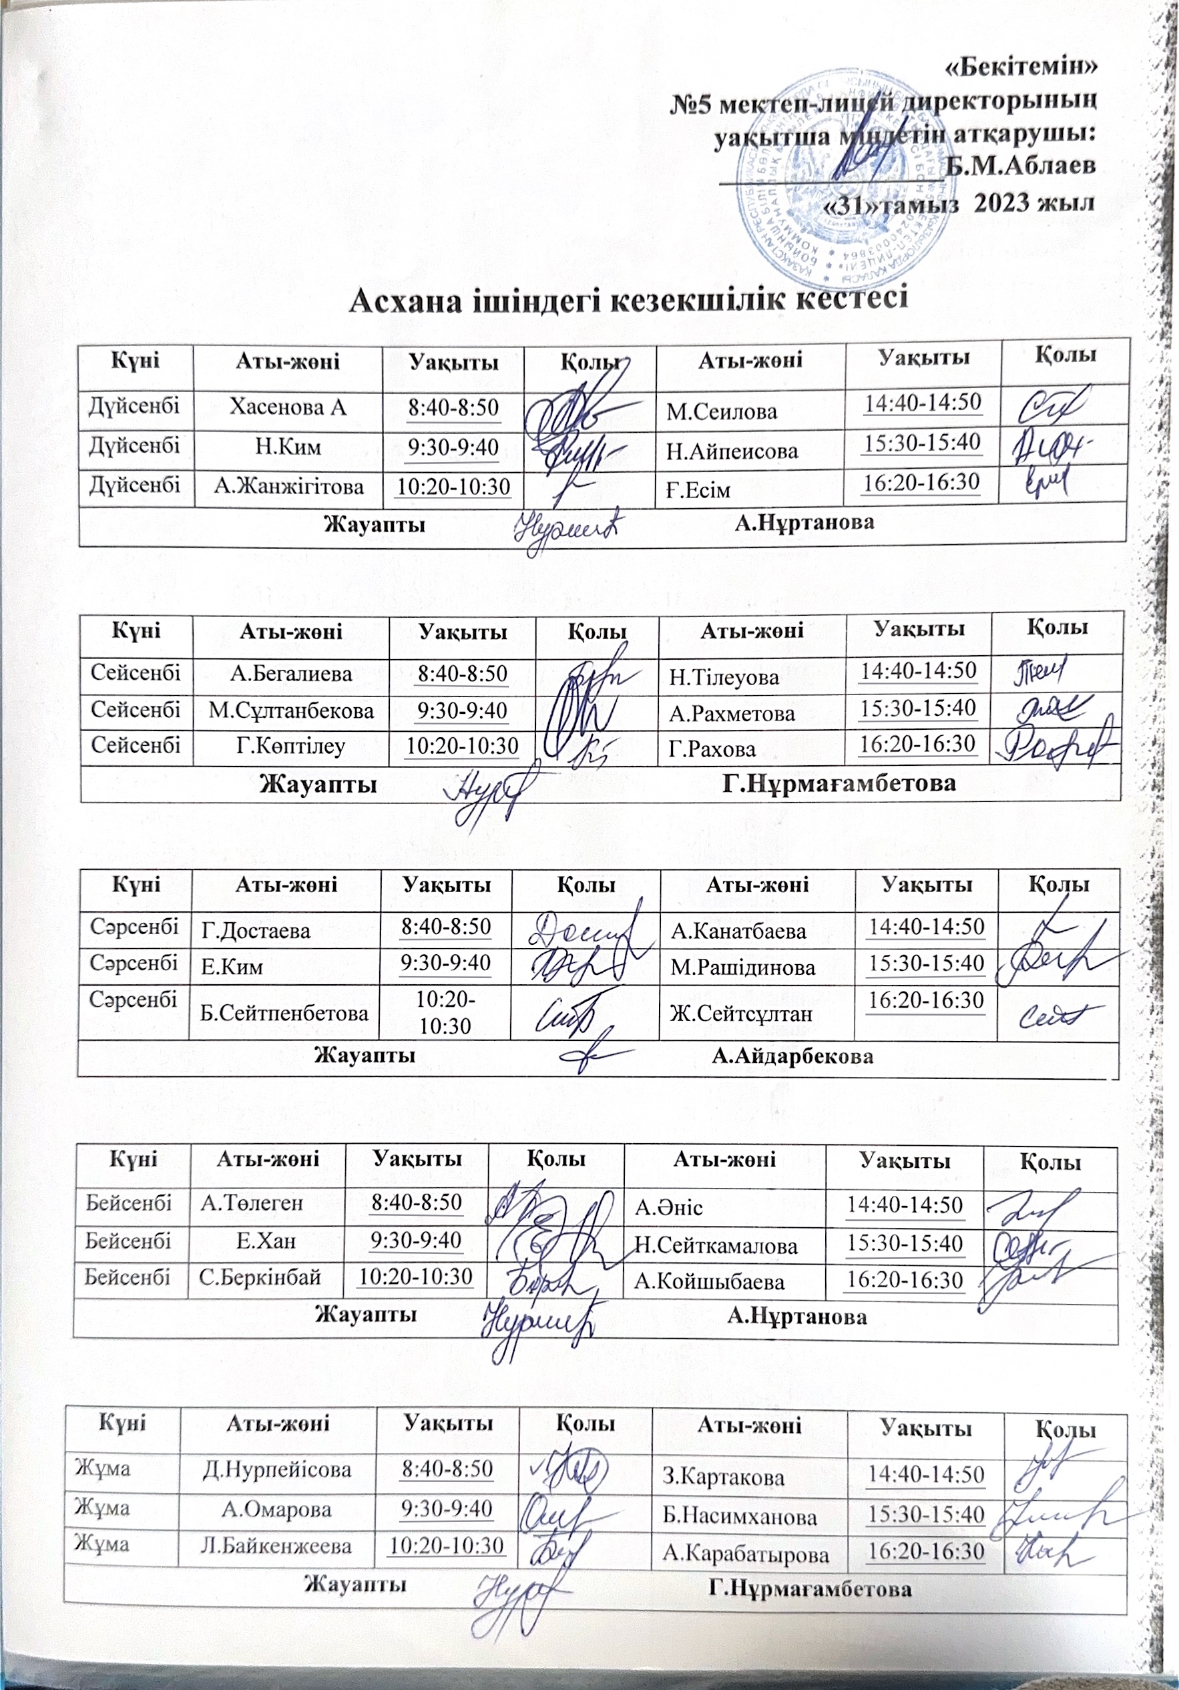 «Бекітемін»
№5 мектеп-лицей директорының
уақытша міндетін атқарушы:
Б.М.Аблаев
«31»тамыз 2023 жыл
Асхана ішіндегі кезекшілік кестесі
Күні Аты-жөні Уақыты Қолы Аты-жөні Уақыты Қолы
Дүйсенбі Хасенова А 8:40-8:50 М.Сеилова 14:40-14:50
Дүйсенбі Н.Ким 9:30-9:40 Н.Айпеисова 15:30-15:40
Дүйсенбі А.Жанжігітова 10:20-10:30 Ғ.Есім 16:20-16:30
Жауапты А.Нұртанова
Күні Аты-жөні Уақыты Қолы Аты-жөні Уақыты Қолы
Сейсенбі А.Бегалиева 8:40-8:50 Н.Тілеуова 14:40-14:50
Сейсенбі М.Сұлтанбекова 9:30-9:40 А.Рахметова 15:30-15:40
Сейсенбі Г.Көптілеу 10:20-10:30 Г.Рахова 16:20-16:30
Жауапты Г.Нұрмағамбетова
Күні Аты-жөні Уақыты Қолы Аты-жөні Уақыты Қолы
Сәрсенбі Г.Достаева 8:40-8:50 А.Канатбаева 14:40-14:50
Сәрсенбі Е.Ким 9:30-9:40 М.Рашідинова 15:30-15:40
Сәрсенбі Б.Сейтпенбетова 10:20-10:30 Ж.Сейтсұлтан 16:20-16:30
Жауапты А.Айдарбекова
Күні Аты-жөні Уақыты Қолы Аты-жөні Уақыты Қолы
Бейсенбі А.Төлеген 8:40-8:50 А.Әніс 14:40-14:50
Бейсенбі Е.Хан 9:30-9:40 Н.Сейткамалова 15:30-15:40
Бейсенбі С.Беркінбай 10:20-10:30 А.Койшыбаева 16:20-16:30
Жауапты А.Нұртанова
Күні Аты-жөні Уақыты Қолы Аты-жөні Уақыты Қолы
Жұма Д.Нурпейісова 8:40-8:50 З.Картакова 14:40-14:50
Жұма А.Омарова 9:30-9:40 Б.Насимханова 15:30-15:40
Жұма Л.Байкенжеева 10:20-10:30 А.Карабатырова 16:20-16:30
Жауапты Г.Нұрмағамбетова